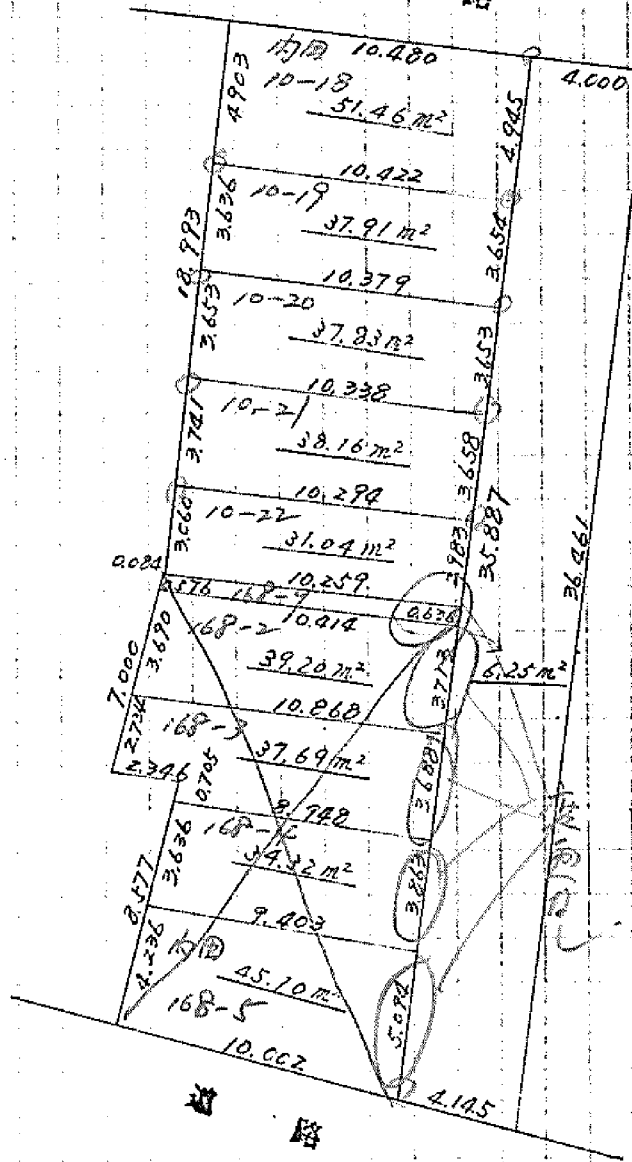 内田 10.480
4.000
10-18
51.46 m²
4.903
4.945
10.422
10-19
37.91 m²
3.636
3.654
18.993
10.379
10-20
37.83 m²
3.653
3.653
10.338
10-21
38.16 m²
3.741
3.658
10.294
10-22
31.04 m²
3.060
2.983
35.887
36.461
0.084
10.259
0.576
168-9
0.636
10.414
168-2
39.20 m²
3.690
3.713
6.25 m²
7.000
10.868
168-3
37.69 m²
2.734
3.688
2.346
0.705
8.948
34.32 m²
3.636
3.863
8.577
9.403
内田
45.10 m²
168-5
4.236
5.094
10.002
4.145
路